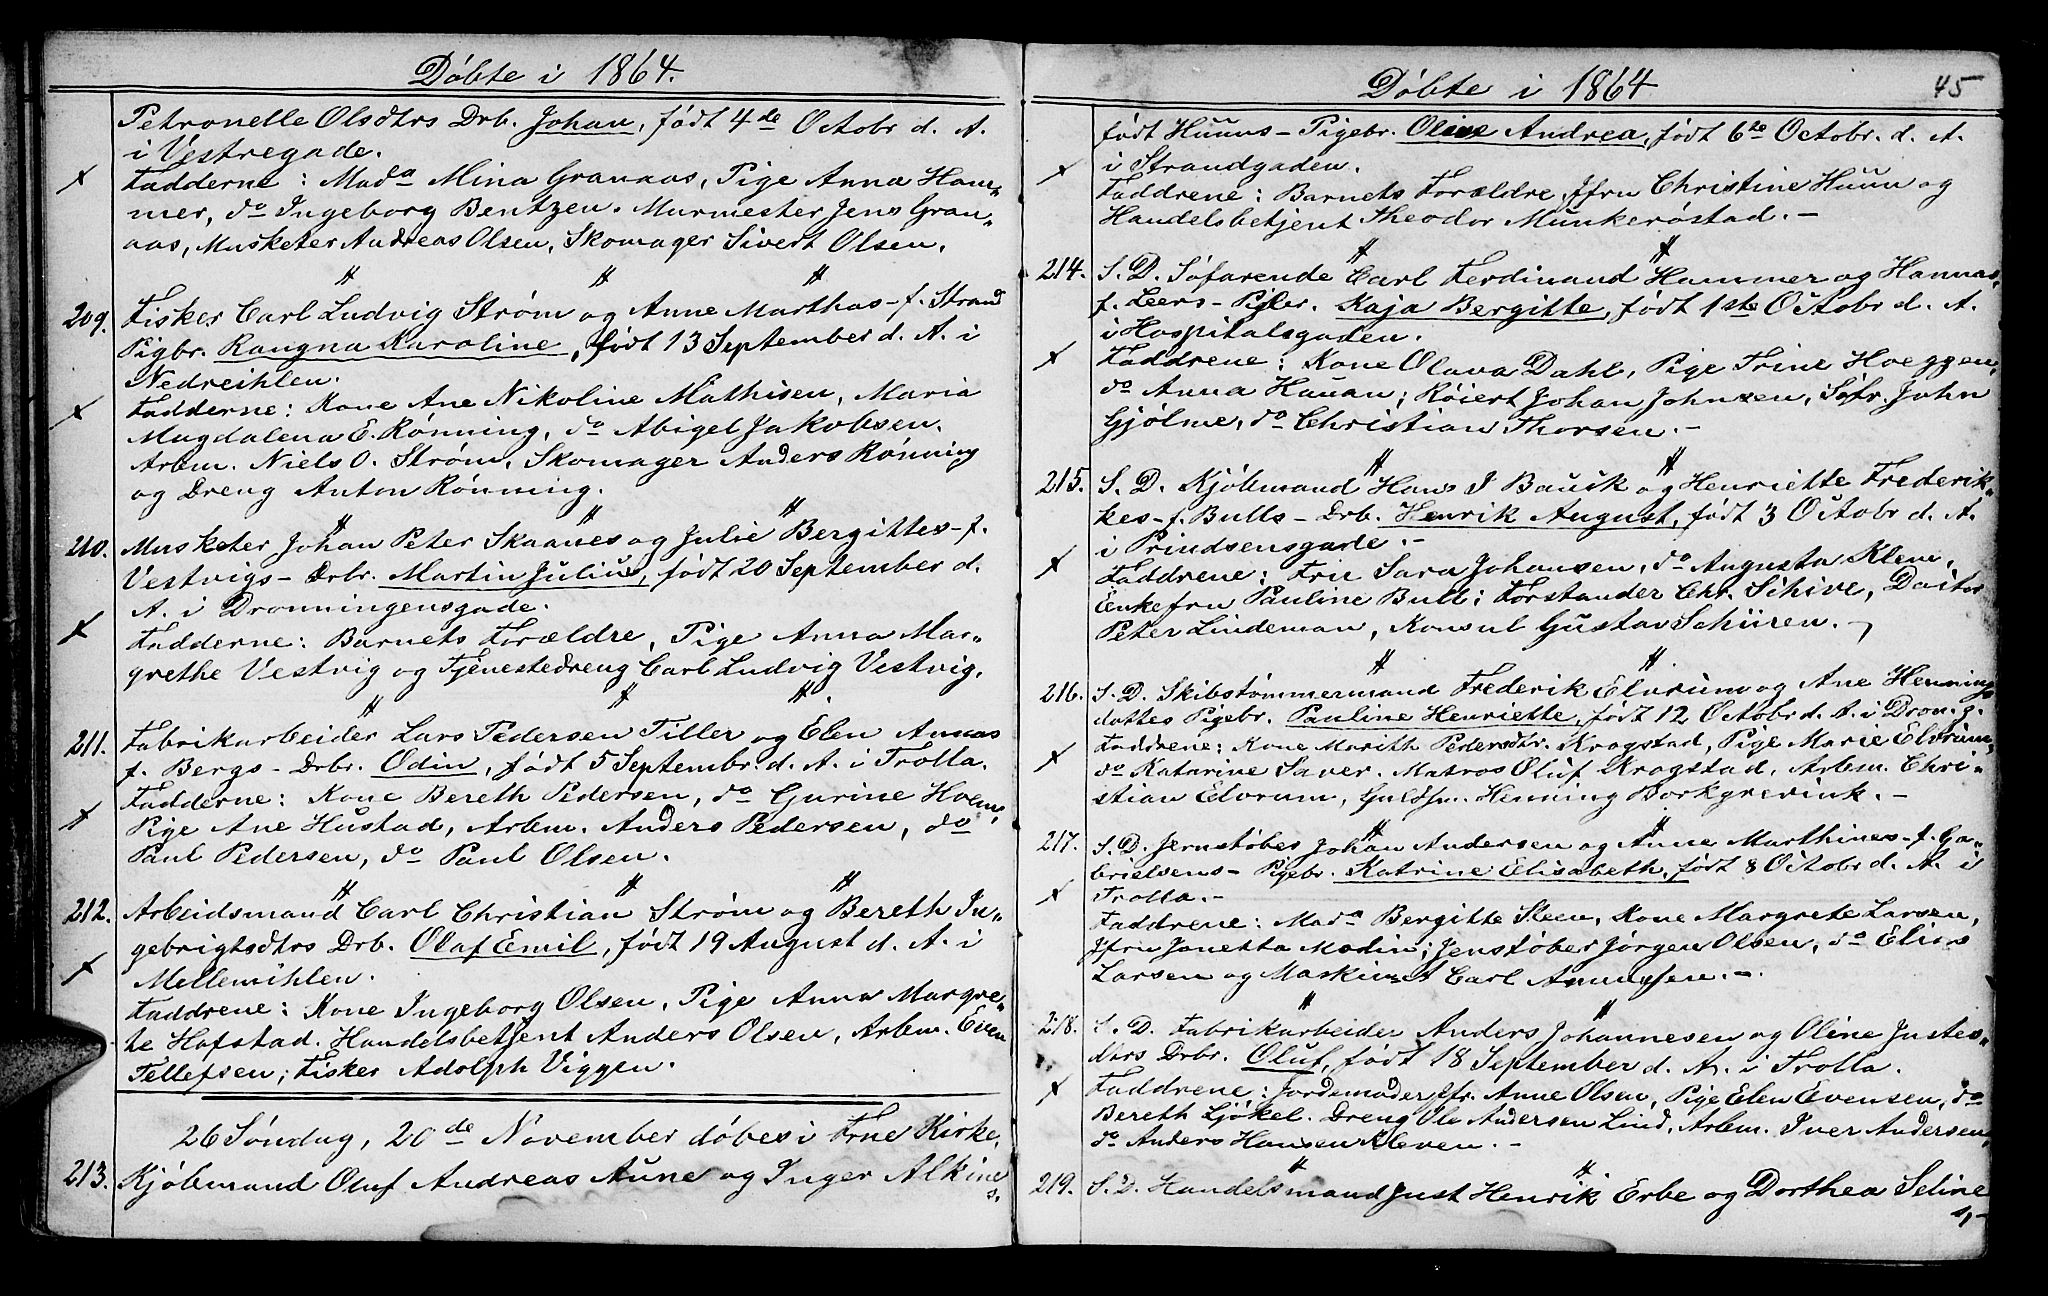 Döbte i 1864.
Petronelle Olsdtrs Drb. Johan, födt 4de Octobr d. A.
i Vestregade.
Fadderne: Mada Mina Granaas, Pige Anna Ham=
mer, do Ingeborg Bentzen. Murmester Jens Gran=
aas, Musketer Andreas Olsen, Skomager Sivert Olsen.
209. Fisker Carl Ludvig Ström og Anne Marthas- f. Strand
Pigbr. Rangna Karoline, födt 13 September d. A. i
Nedreihlen.
Fadderne: Kone Ane Nikoline Mathisen, Maria
Magdalena E. Rönning, do Abigel Jakobsen.
Arbm. Niels O. Ström, Skomager Anders Rönning
og Dreng Anton Rönning.
210. Musketer Johan Peter Skaanes og Julie Bergittes- f.
Vestvigs- Drbr. Martin Julius, födt 20 September d.
A. i Dronningensgade.
Fadderne: Barnets Forældre, Pige Anna Mar=
grethe Vestvig og Tjenestedreng Carl Ludvig Vestvig.
211. Fabrikarbeider Lars Pedersen Tiller og Elen Annas
f. Bergs- Drbr. Odin, födt 5 Septembr. d. A. i Trolla.
Fadderne: Kone Bereth Pedersen, do Gurine Holm,
Pige Ane Hustad, Arbm. Anders Pedersen, do
Paul Pedersen, do Paul Olsen.
212. Arbeidsmand Carl Christian Ström og Bereth In=
gebrigtsdtrs Drb. Olaf Emil, födt 19 August d. A. i
Mellemihlen.
Faddrene: Kone Ingeborg Olsen, Pige Anna Margre=
te Hofstad. Handelsbetjent Anders Olsen, Arbm. Even
Tellefsen; Fisker Adolph Viggen.
26 Söndag, 20de November döbes i Frue Kirke,
213. Kjöbmand Oluf Andreas Aune og Inger Alkine
s.
Döbte i 1864
45
födt Huuns- Pigebr. Olive Andrea, födt 6te Octobr. d. A.
i Strandgaden.
Faddrene: Barnets Forældre, Jfru Christine Huun og
Handelsbetjent Theodor Munkeröstad.-
214. S. D. Söfarende Carl Ferdinand Hammer og Hannas=
f. Leers- Pigbr. Kaja Bergitte, födt 1ste Octobr d. A.
i Hospitalsgaden.
Faddrene: Kone Olava Dahl, Pige Trine Hoeggen,
do Anna Hauan; Röiert Johan Johnsen, Söfr. John
Gjölme, do Christian Thorsen.-
215. S. D. Kjöbmand Hans J Bauck og Henriette Frederik=
kes- f. Bulls- Drb. Henrik August, födt 3 Octobr d. A.
i Prindsensgade.-
Faddrene: Fru Sara Johansen, do Augusta Klem,
Enkefru Pauline Bull; Forstander Chr. Schive, Doctor
Peter Lindeman, Konsul Gustav Schüren.-
216. S. D. Skibstömmermand Frederik Elvrum og Ane Hennings
dattes Pigebr. Pauline Henriette, födt 12 Octobr d. A. i Dron.g.
Faddrene: Kone Marith Pedersdtr. Krogstad, Pige Marie Elvrum,
do Katarine Saver. Matros Oluf Krogstad, Arbm. Chri=
stian Elvrum, Guldsm. Henning Borkgrevink.-
217. S. D. Jernstöber Johan Andersen og Anne Marthines- f. Ga=
brielsens- Pigebr. Katrine Elisabeth, födt 8 Octobr d. A. i
Trolla.-
Faddrene: Mada Bergitte Steen, Kone Margrete Larsen,
Jfru Janetta Modin; Jenstöber Jörgen Olsen, do Elias
Larsen og Maskinist Carl Amundsen.-
218. S. D. Fabrikarbeider Anders Johannesen og Oline Justes=
dtrs Drbr. Oluf, födt 18 September d. A. i Trolla.
Faddrene: Jordemoder Jfr. Anne Olsen, Pige Elen Evensen, do
Bereth Ljökel. Dreng Ole Andersen Lind, Arbm. Iver Andersen,
do Anders Hansen Kleven.-
219. S. D. Handelsmand Just Henrik Erbe og Dorthea Seline
s,-